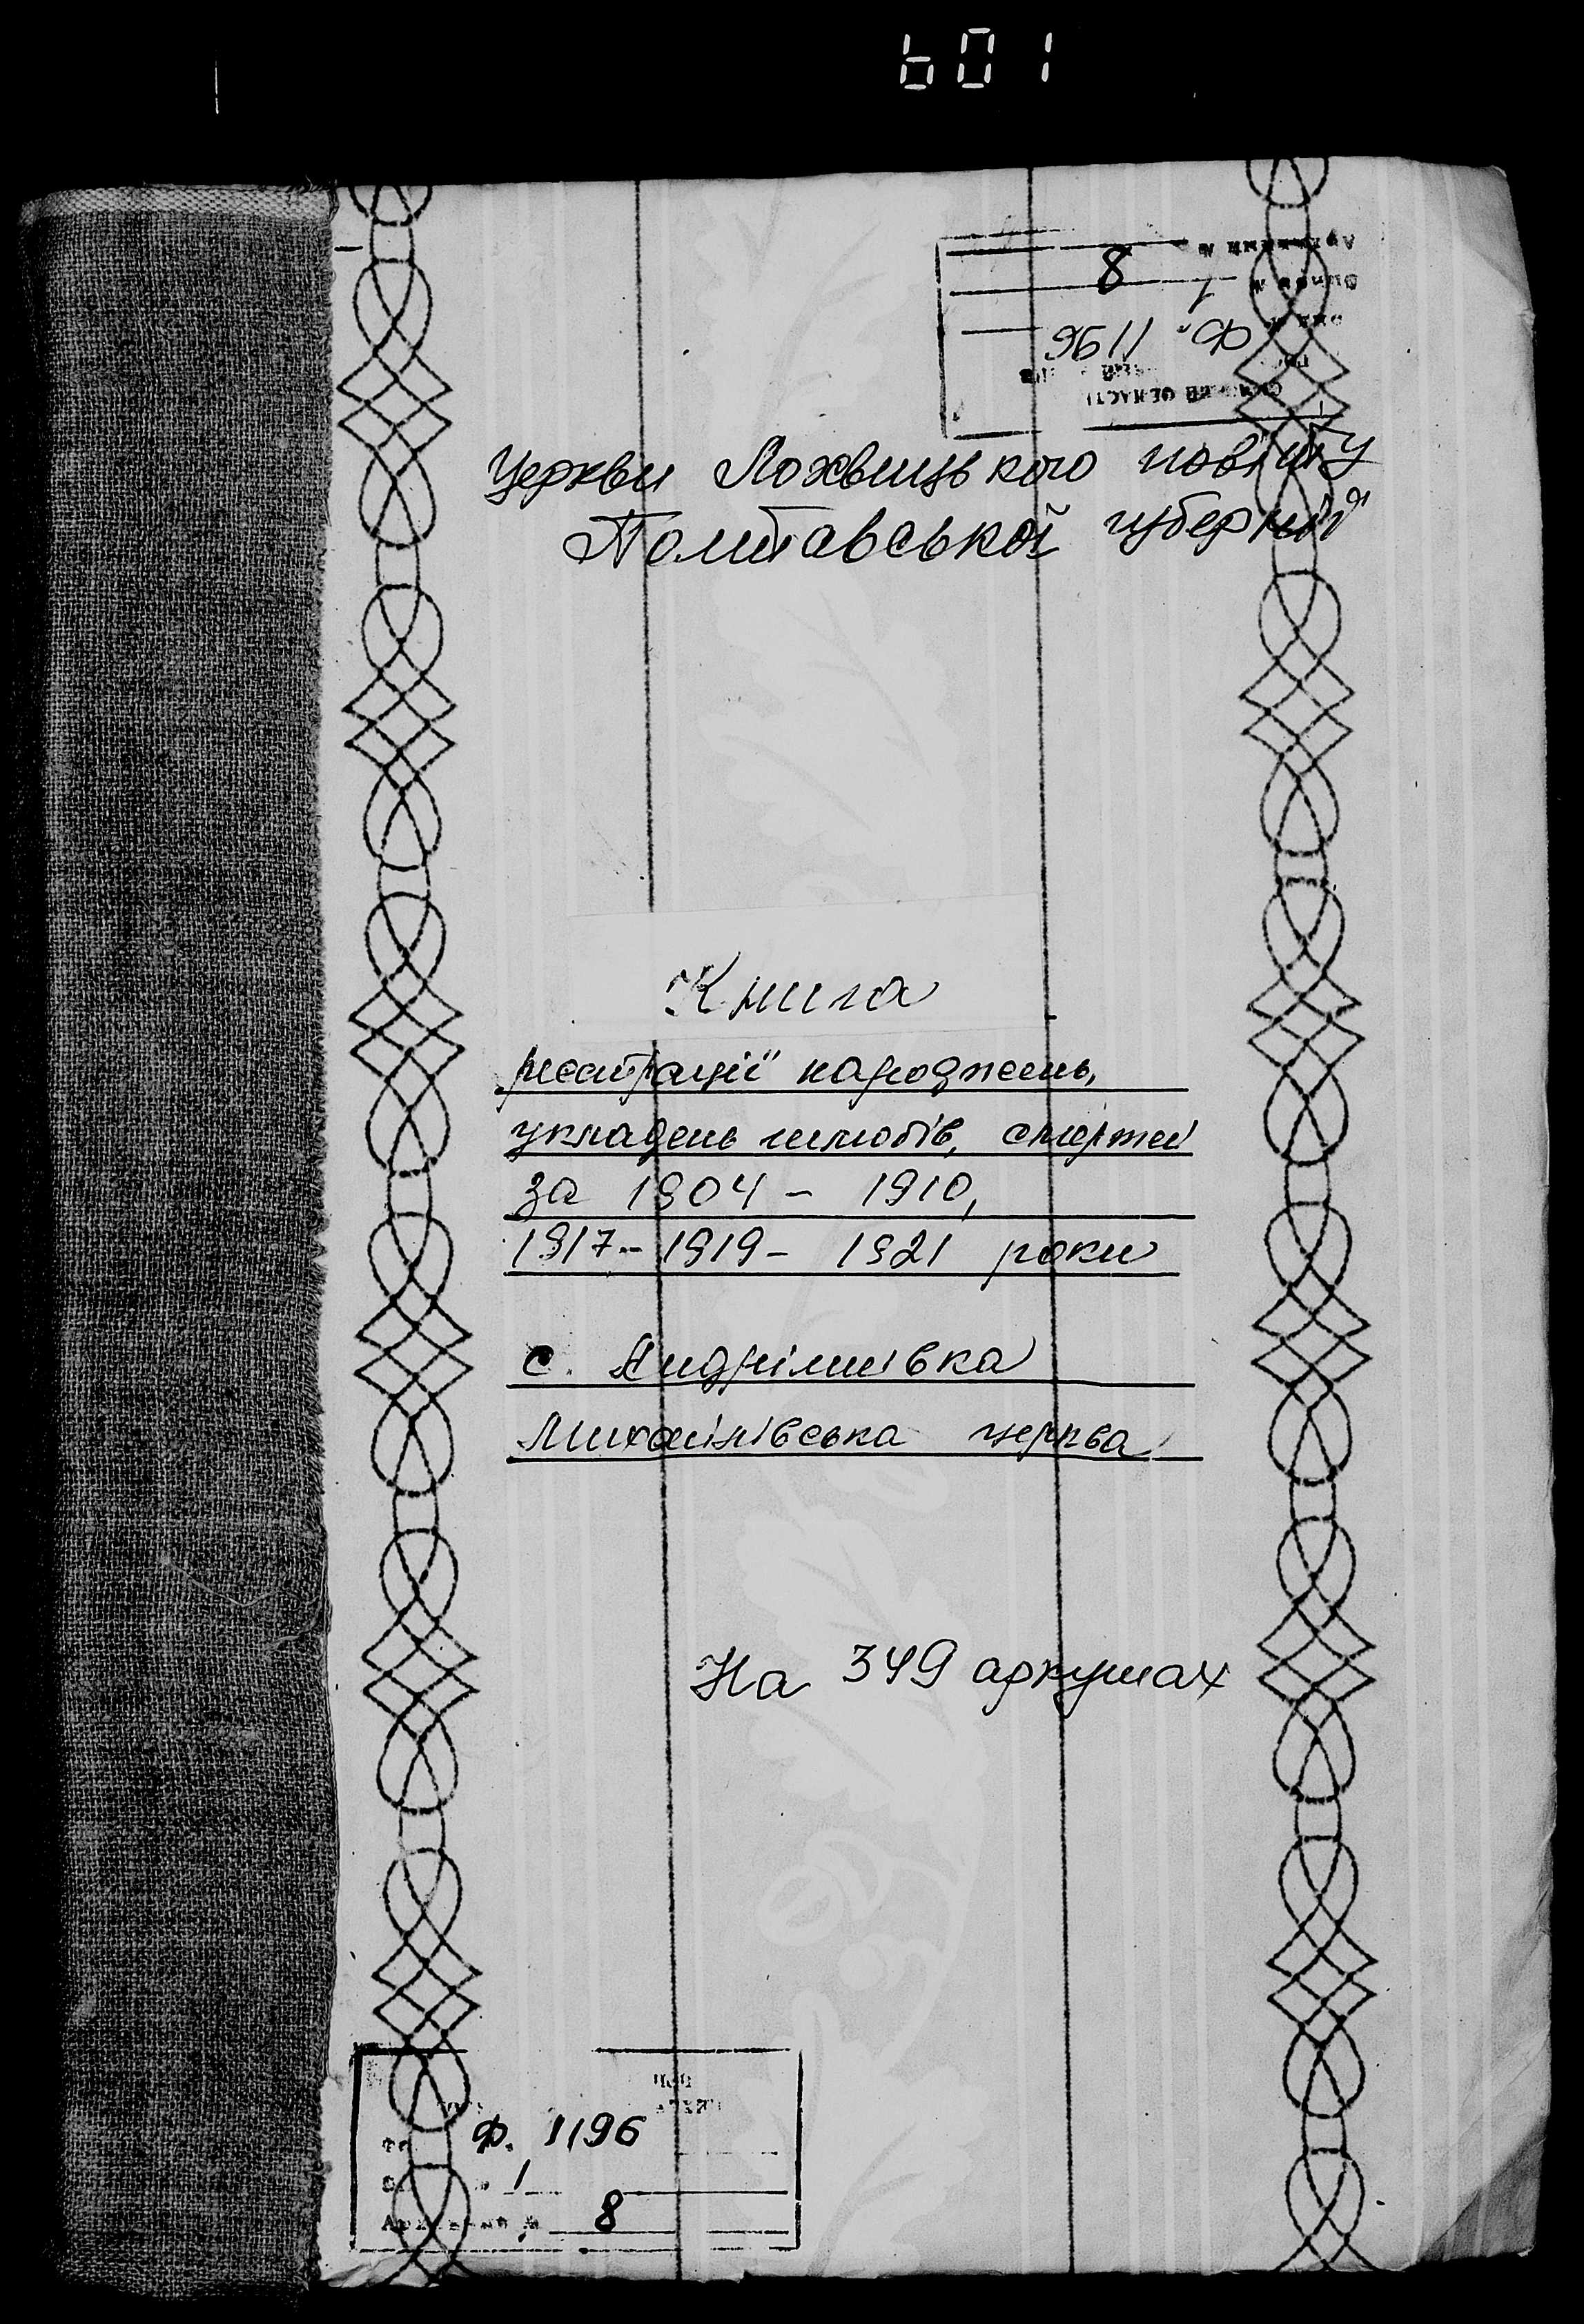 601
8
1
Ф. 1196
ОБЛАСТІ
Церкви Лохвицького повіту
Полтавської губернії
Книга
реєстрації народжень,
укладень шлюбів, смертей
за 1904 - 1910,
1917 - 1919 - 1921 роки
с. Андріяшівка
Михайлівська церква
На 349 аркушах
Ф. 1196
1
8